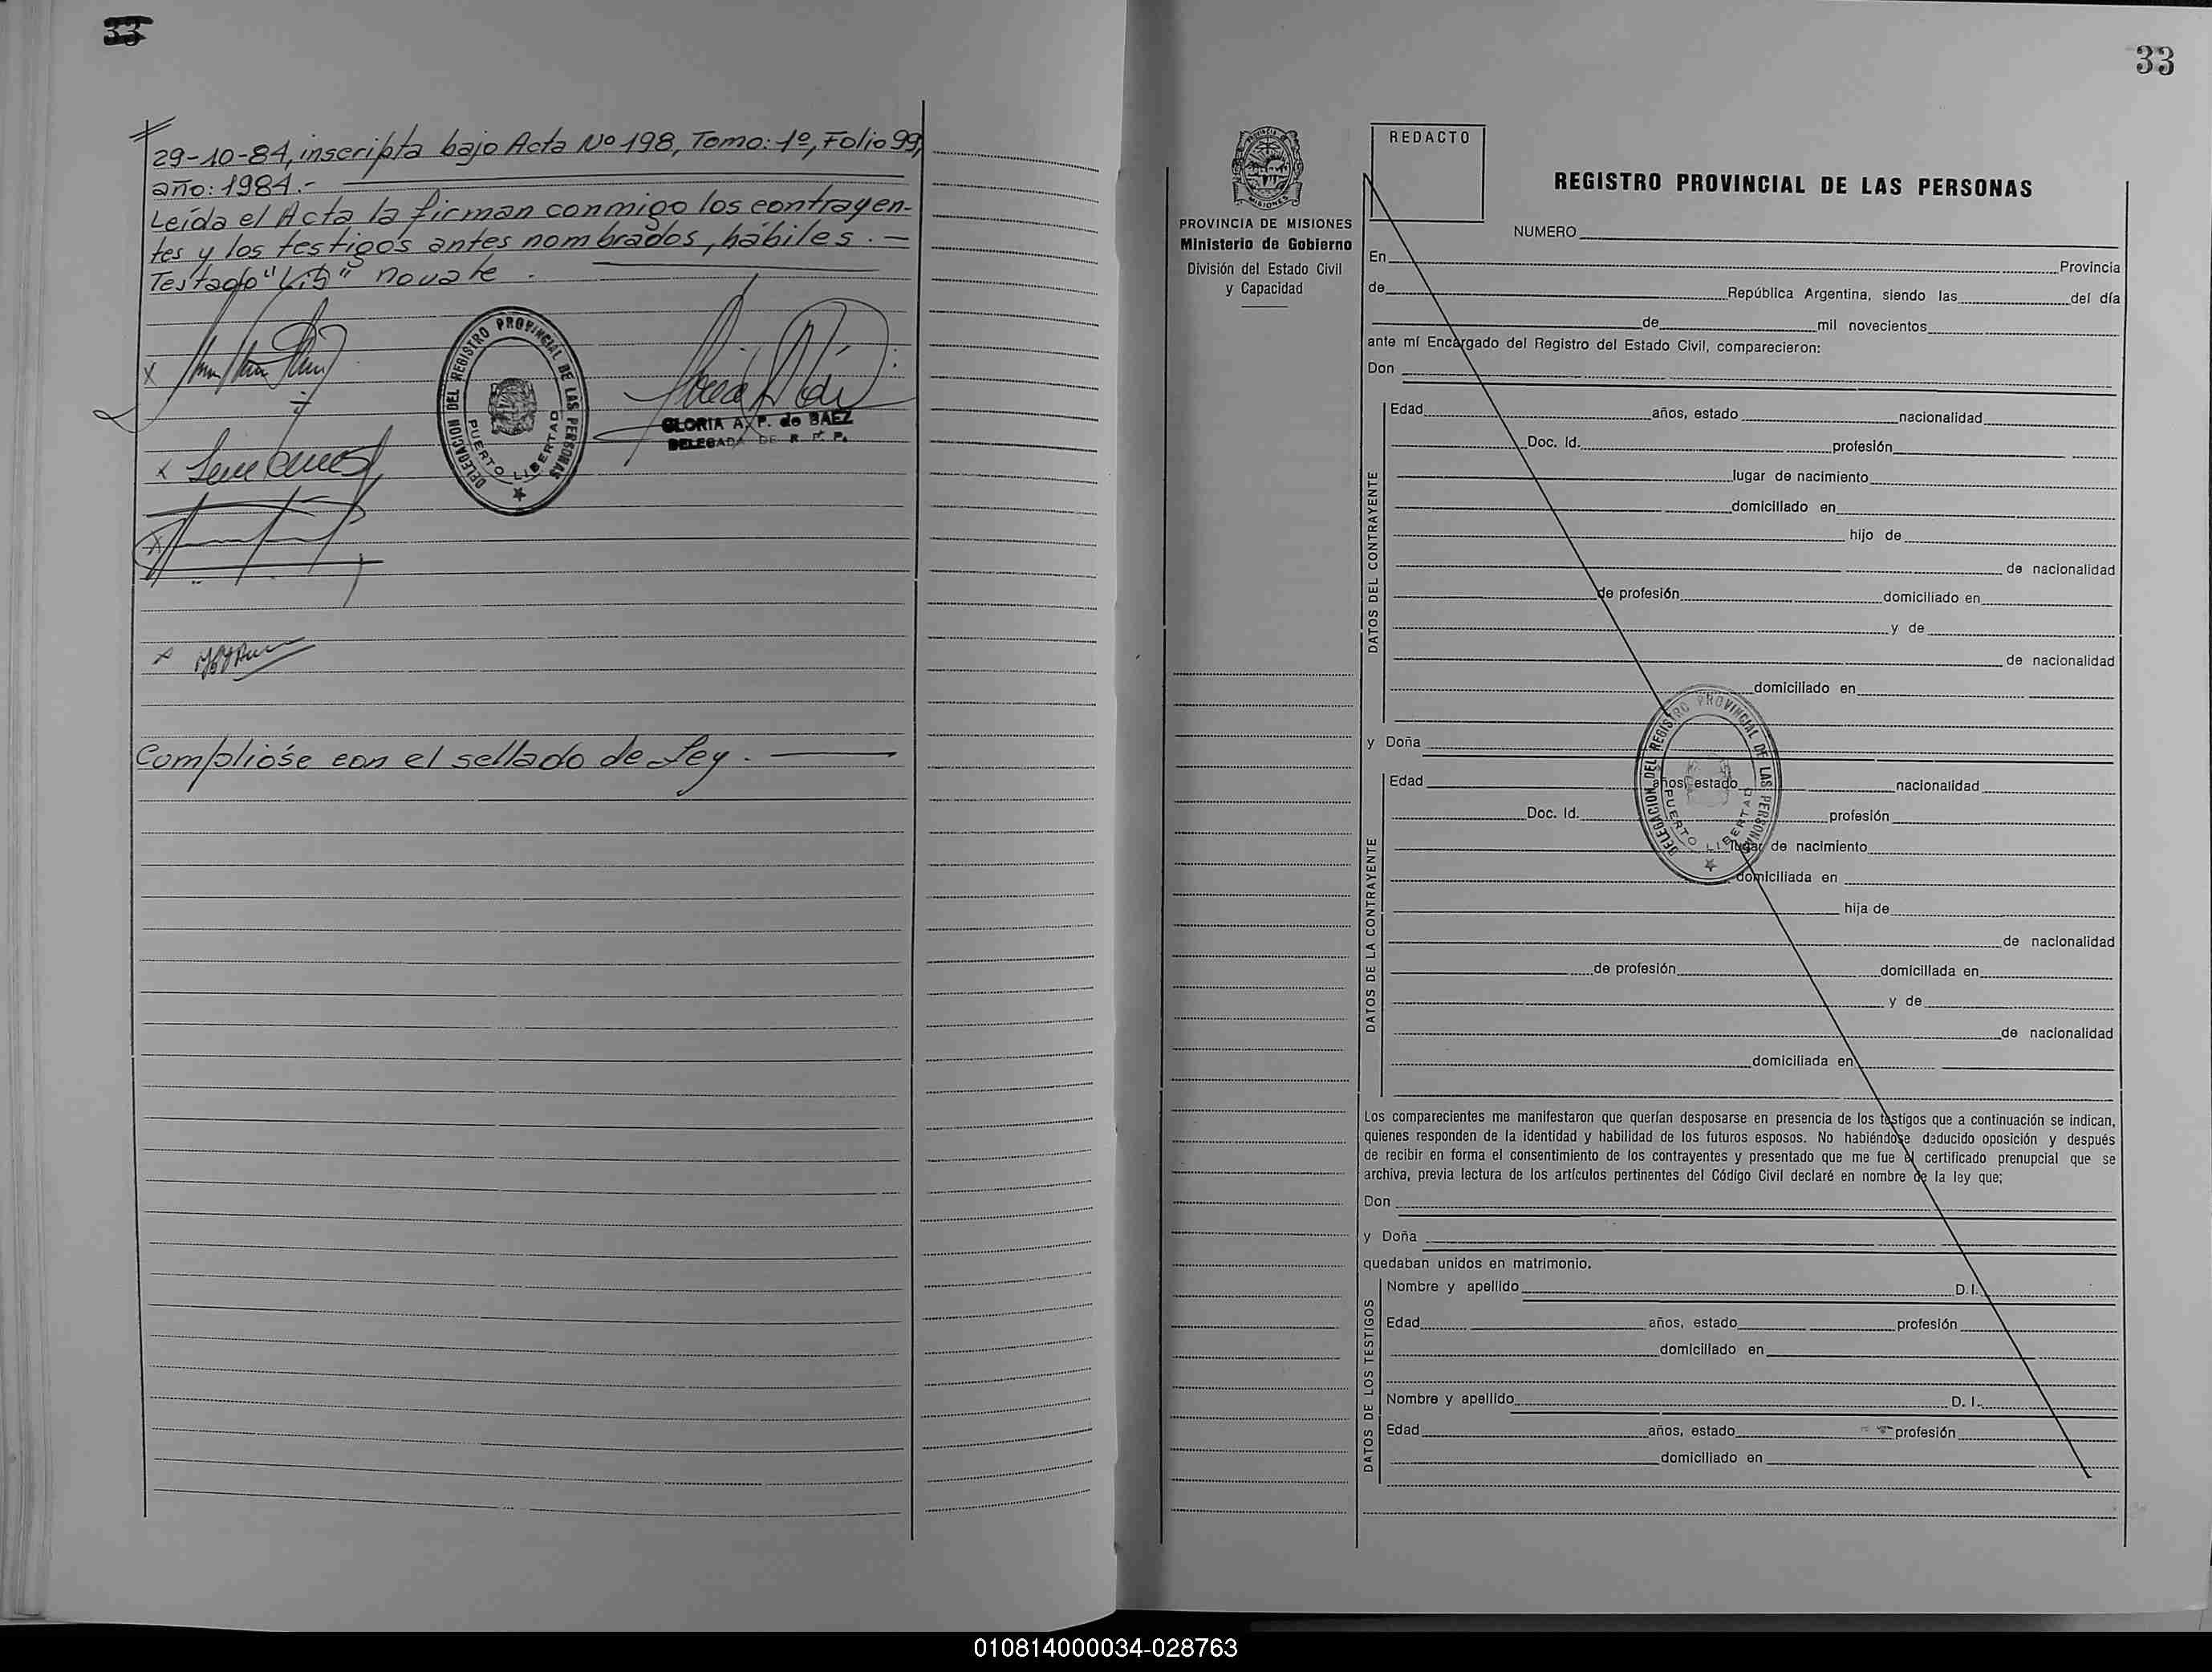 33
29-10-84, inscripta bajo Acta Nº 198, Tomo: 1º, Folio 99,
año: 1984.-
Leída el Acta la firman conmigo los contrayen-
tes y los testigos antes nombrados, hábiles. —
Testado " " no vale.
DELEGACION DEL REGISTRO PROVINCIAL DE LAS PERSONAS
PUERTO LIBERTAD
GLORIA A. P. de BAEZ
DELEGADA DE R. P. P.
Cumplióse con el sellado de Ley. —
33
PROVINCIA DE MISIONES
Ministerio de Gobierno
División del Estado Civil
y Capacidad
REDACTO
REGISTRO PROVINCIAL DE LAS PERSONAS
NUMERO
En Provincia
de República Argentina, siendo las del día
de mil novecientos
ante mí Encargado del Registro del Estado Civil, comparecieron:
Don
DATOS DEL CONTRAYENTE
Edad años, estado nacionalidad
Doc. Id. profesión
lugar de nacimiento
domiciliado en
hijo de
de nacionalidad
de profesión domiciliado en
y de
de nacionalidad
domiciliado en
y Doña
DATOS DE LA CONTRAYENTE
Edad años, estado nacionalidad
Doc. Id. profesión
lugar de nacimiento
domiciliada en
hija de
de nacionalidad
de profesión domiciliada en
y de
de nacionalidad
domiciliada en
DELEGACION DEL REGISTRO PROVINCIAL DE LAS PERSONAS
PUERTO LIBERTAD
Los comparecientes me manifestaron que querían desposarse en presencia de los testigos que a continuación se indican,
quienes responden de la identidad y habilidad de los futuros esposos. No habiéndose deducido oposición y después
de recibir en forma el consentimiento de los contrayentes y presentado que me fue el certificado prenupcial que se
archiva, previa lectura de los artículos pertinentes del Código Civil declaré en nombre de la ley que;
Don
y Doña
quedaban unidos en matrimonio.
DATOS DE LOS TESTIGOS
Nombre y apellido D.I.
Edad años, estado profesión
domiciliado en
Nombre y apellido D. I.
Edad años, estado profesión
domiciliado en
010814000034-028763